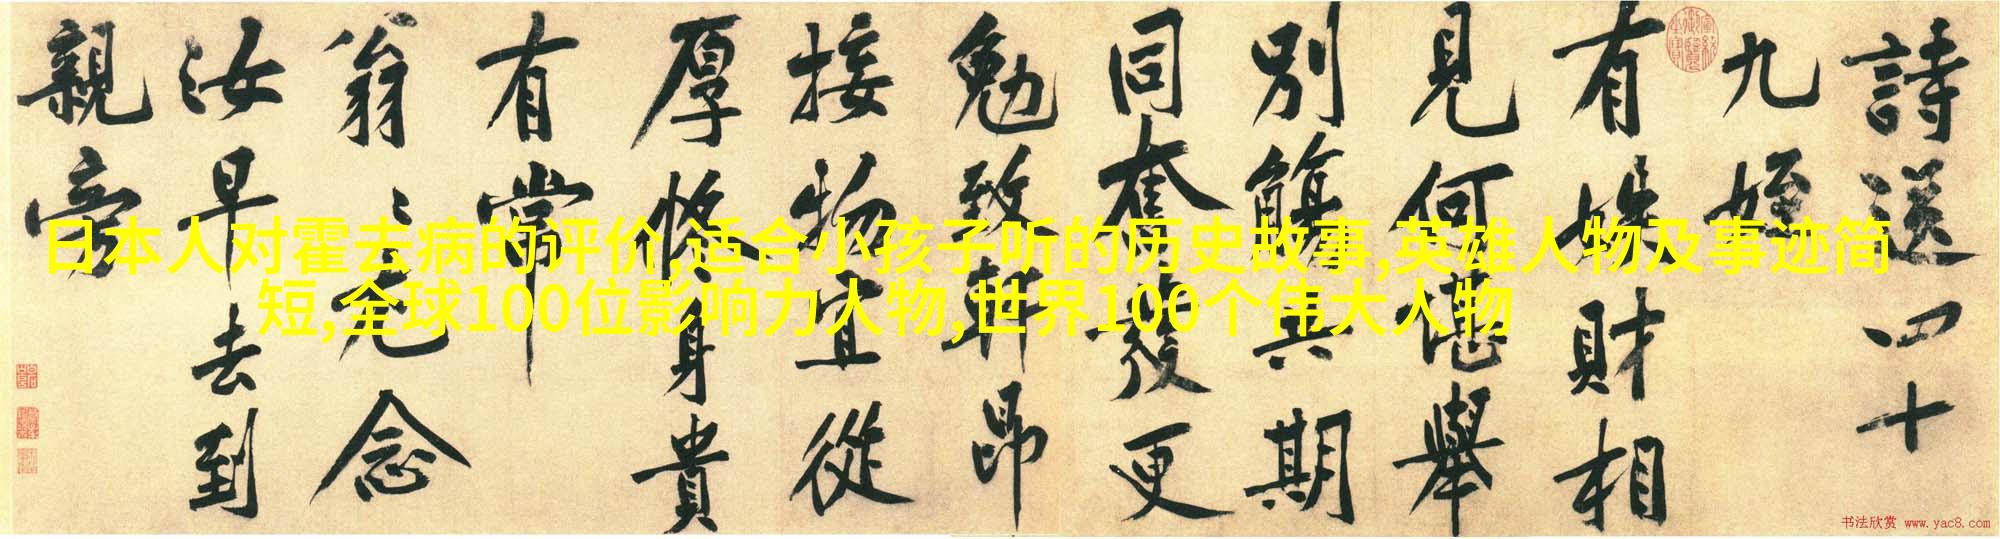 詩送四十
九姪
有妷財相
見何堪舉
別觴共期
同奮發更
勉致軒昂
接物宜從
厚修身貴
有常
翁〻老念
汝早去到
親旁
日本人对霍去病的评价,适合小孩子听的历史故事,英雄人物及事迹简
短,全球100位影响力人物,世界100个伟大人物
书法欣赏 www.yac8.com